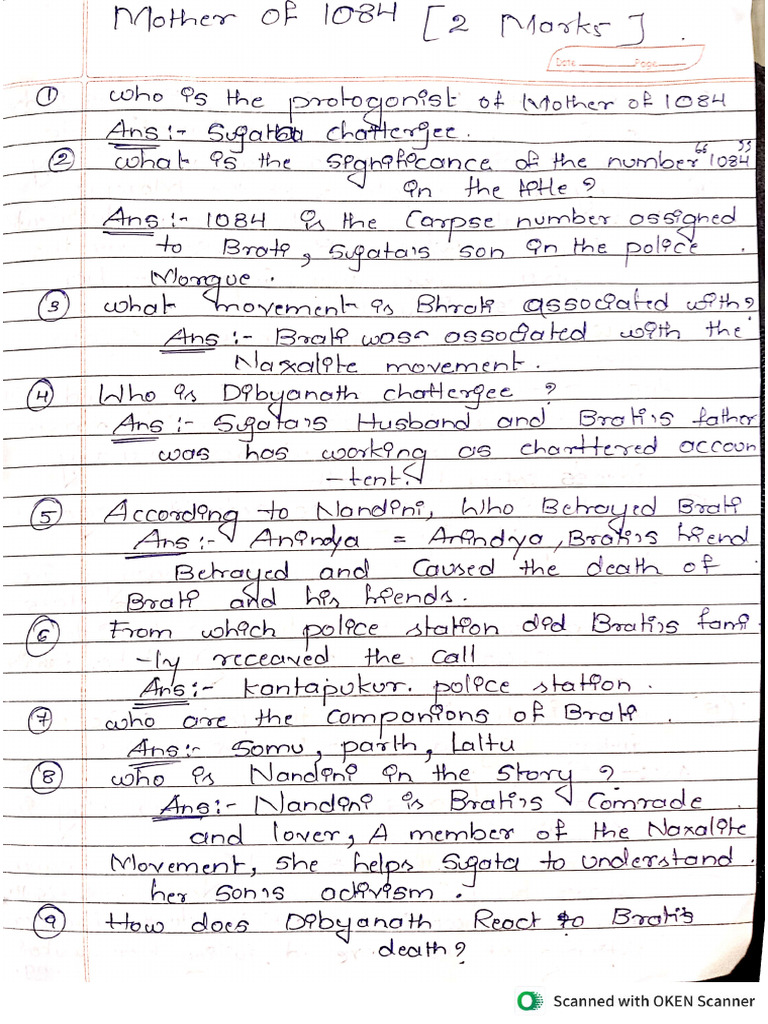 Mother of 1084 [2 Marks].
Date Page
① who is the protogonist of Mother of 1084
Ans :- Sugata chattergee.
② what is the significance of the number "1084"
in the title ?
Ans :- 1084 is the Carpse number assigned
to Brati, Sugata's son in the police .
Morgue .
③ what movement is Bhrati associated with?
Ans :- Brati was associated with the
Naxalite movement .
④ Who is Dibyanath chattergee ?
Ans :- Sugata's Husband and Brati's father
was has working as charttered accoun
-tent.
⑤ According to Nandini, Who Betrayed Brati
Ans :- Anindya = Anindya, Brati's friend
Betrayed and Caused the death of
Brati and his friends .
⑥ From which police station did Brati's fami
-ly receaved the call
Ans :- kantapukur. police station .
⑦ who are the companions of Brati .
Ans :- Somu, parth, Laltu
⑧ who is Nandini in the story ?
Ans :- Nandini is Brati's Comrade
and lover, A member of the Naxalite
Movement, she helps Sugata to understand .
her son's activism .
⑨ How does Dibyanath React to Brati's
death?
Scanned with OKEN Scanner